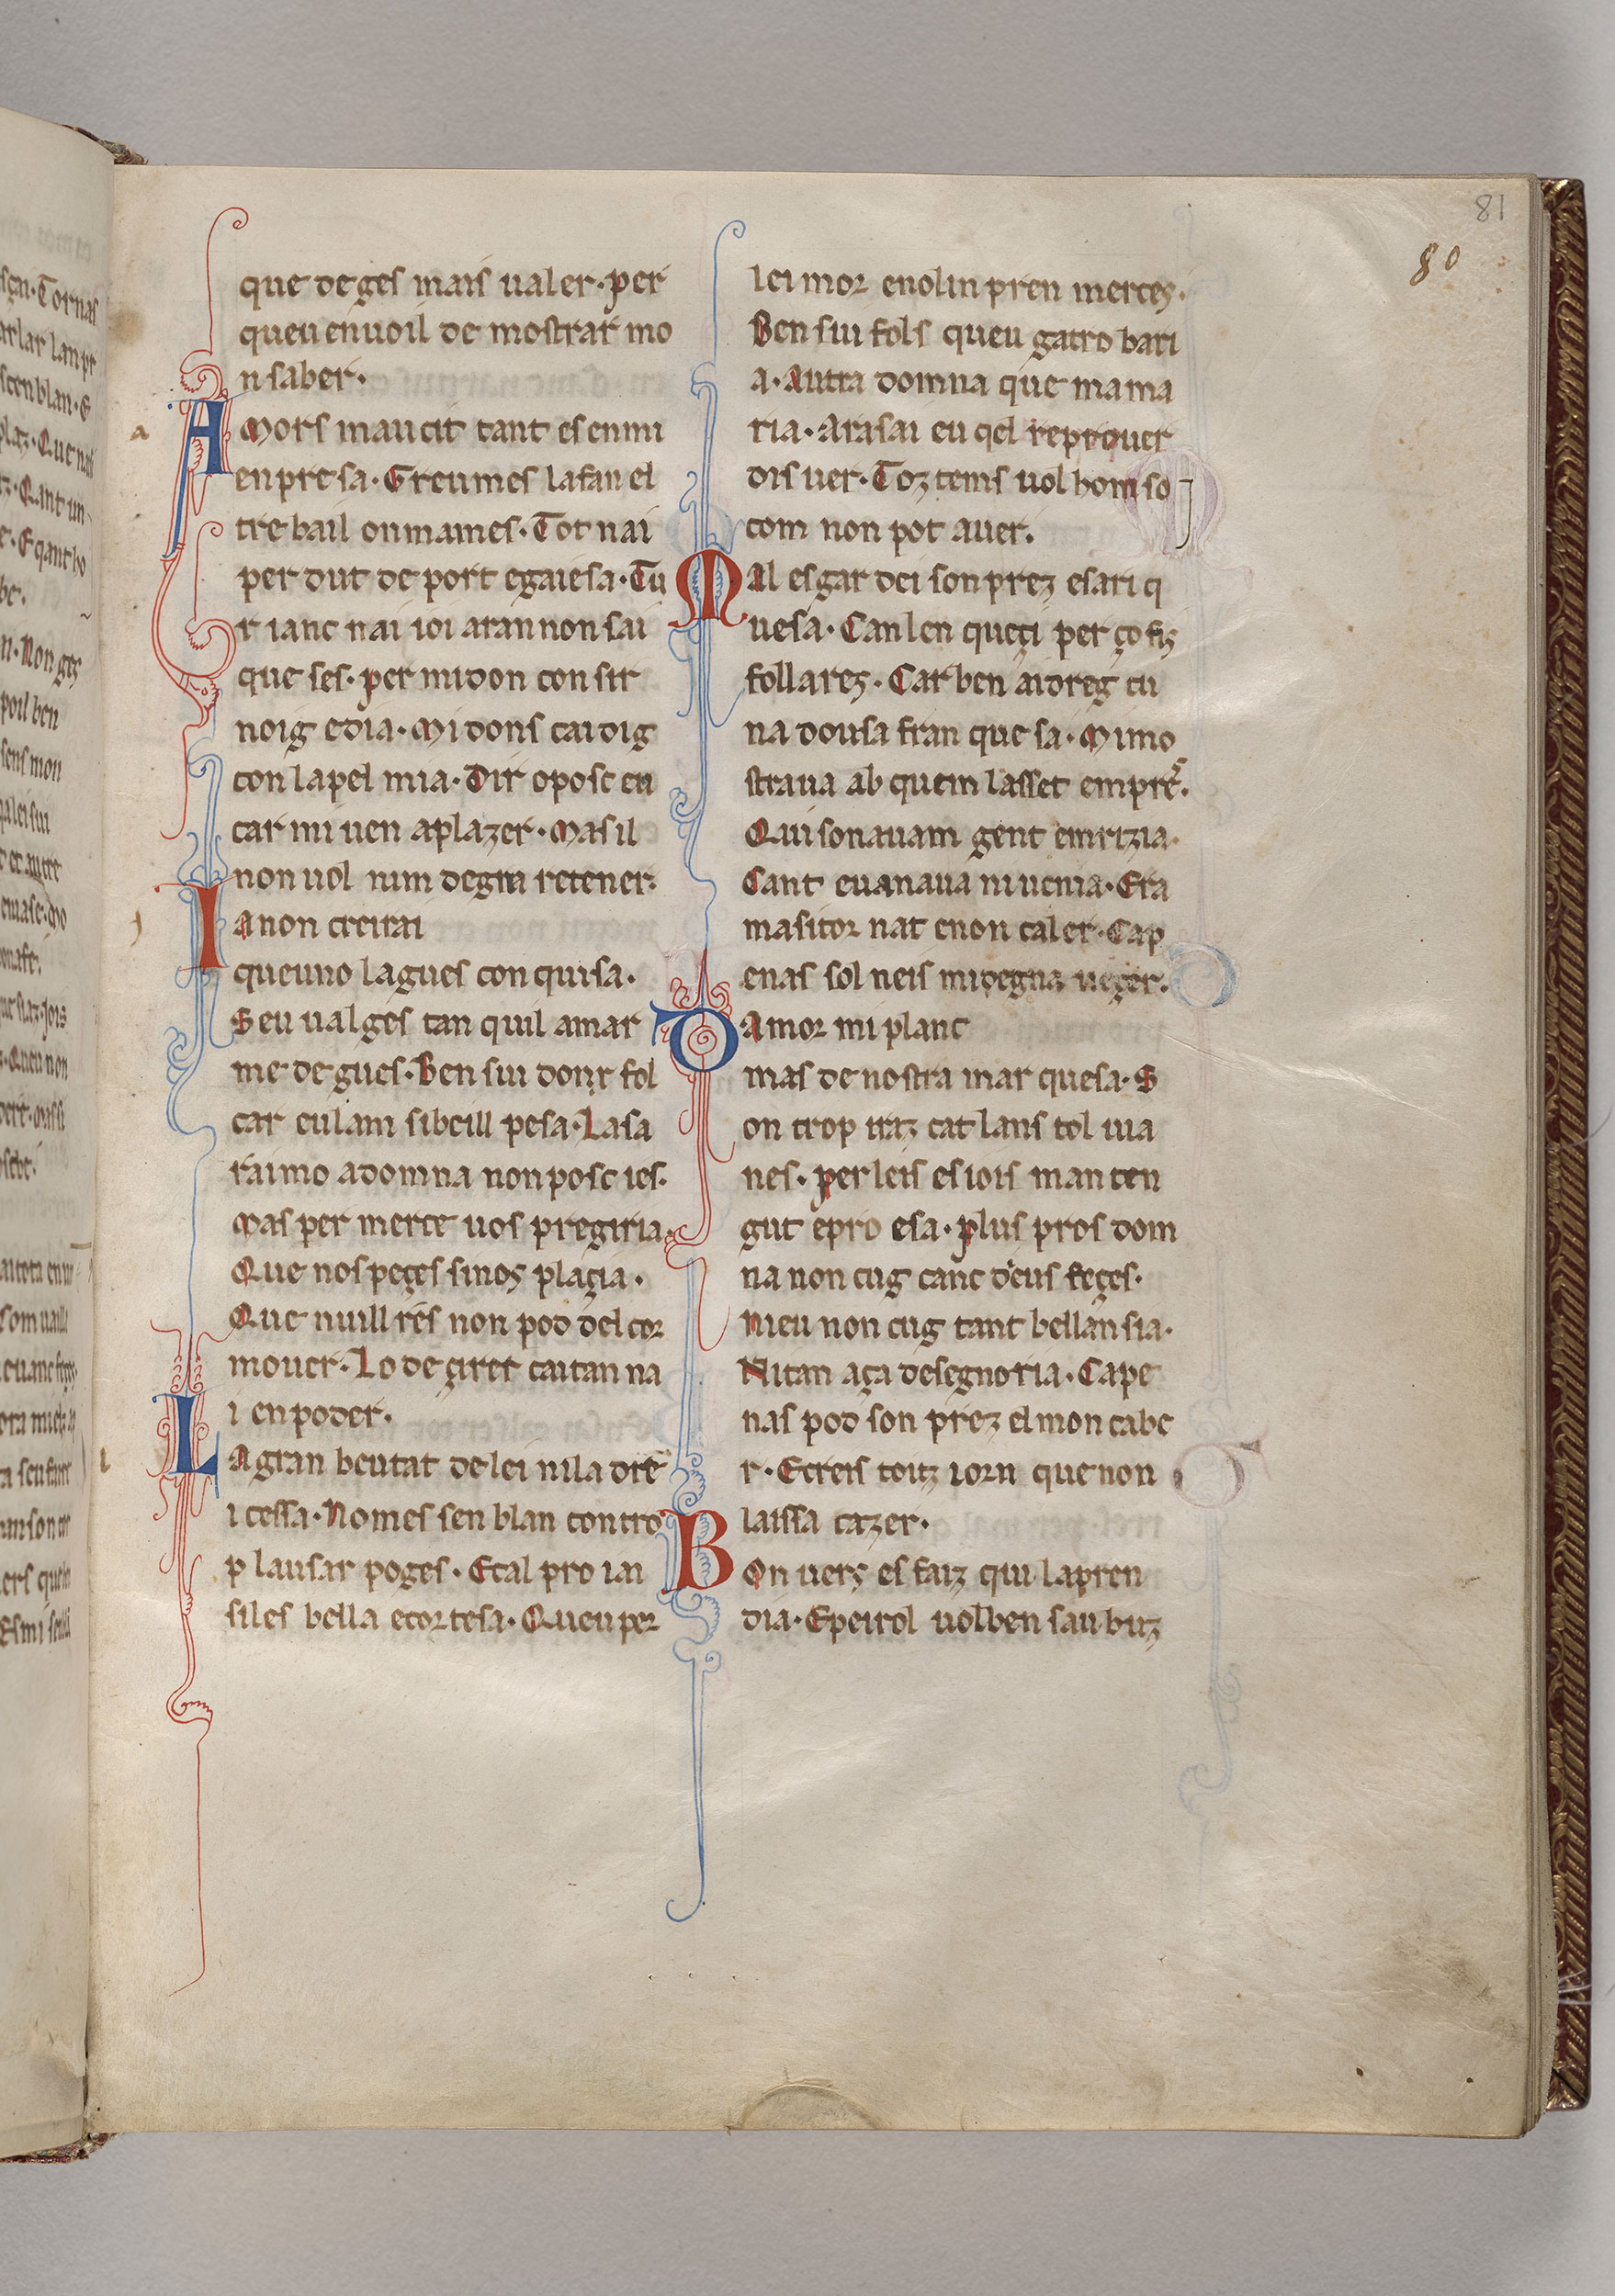 81
80
que de ges mais ualer· per
queu enuoil de mostrar mo
n saber·
a
Amors mau cit tant es en mi
enpresa· Greumes lafan el
tre bail on mames· Tot nai
per dut de port egaiesa· Tu
r ianc nai ioi aran non sai
que ses· per midon consir
noig edia· Midons cai dig
con la pel mia· Dir o posc eu
car mi uen aplazer· Mas il
non uol nim degna retener·
Ia non creirai
queuno lagues conquisa·
Seu ual ges tan quil amar
me de gues· Ben sui donx fol
car eulam sibeill pesa· Lasa
raimo a domna non posc ies·
Mas per merce uos pregiria·
Que nos peçes sinos plaçia·
Que nuill res non pod del cor
mouer· Lo de çirer cai tan na
i en poder·
l
La gran beutat de lei nila dre
i cessa· Nomes sen blan contro
p lausar poges· Etal pro i ai
siles bella ecortesa· Queu per
lei mor enolin pren merces·
Ben sui fols queu gatro bari
a· Autra domna que ma ma
ria· Ara sai eu qel reprouer
dis uer· Toz tems uol hom so
com non pot auer·
Mal esgar dei son prez esa ri q
uesa· Can len queçi per ço fis
follares· Car ben ai dreg eu
na dousa fran que sa· Mi mo
straua ab quem lasset empres·
Qui sonauam gent em rizia·
Cant eu anaua ni uenia· Era
ma si tor nat enon caler· Cap
enas sol neis mi degna ueçer·
D amor mi planc
mas de nostra mar quesa· S
on trop iraz cat lans tol uia
nes· per leis es iois man ten
gut epro esa· plus pros dom
na non cug canc deus feçes·
Nieu non cug tant bellan sia·
Ni tan aça de segnoria· Cape
nas pod son prez el mon cabe
r· Ecreis toiz iorn que non
laissa cazer·
Bon uers es faiz qui lapren
dia· Epeirol uol ben sau buz